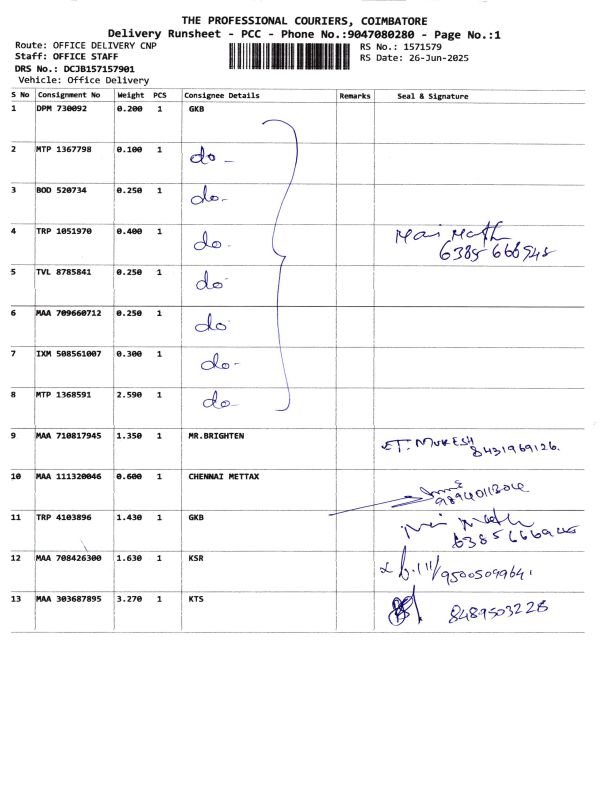 THE PROFESSIONAL COURIERS, COIMBATORE
Delivery Runsheet - PCC - Phone No.:9047080280 - Page No.:1
Route: OFFICE DELIVERY CNP RS No.: 1571579
Staff: OFFICE STAFF RS Date: 26-Jun-2025
DRS No.: DCJB157157901
Vehicle: Office Delivery
S No Consignment No Weight PCS Consignee Details Remarks Seal & Signature
1 DPM 730092 0.200 1 GKB
2 MTP 1367798 0.100 1 do -
3 BOD 520734 0.250 1 do -
4 TRP 1051970 0.400 1 do -
6385 666945
5 TVL 8785841 0.250 1 do
6 MAA 709660712 0.250 1 do
7 IXM 508561007 0.300 1 do -
8 MTP 1368591 2.590 1 do -
9 MAA 710817945 1.350 1 MR.BRIGHTEN ET. MUKESH
8431969126.
10 MAA 111320046 0.600 1 CHENNAI METTAX
11 TRP 4103896 1.430 1 GKB
12 MAA 708426300 1.630 1 KSR 9500509964.
13 MAA 303687895 3.270 1 KTS 8489503228